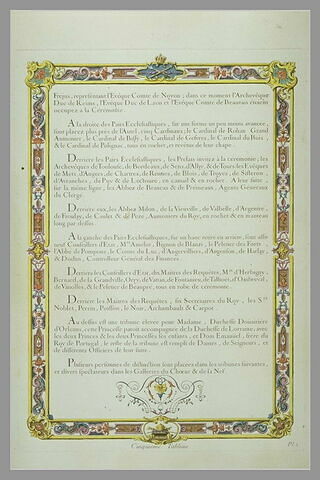 Frejus, representant l'Evêque Comte de Noyon; dans ce moment l'Archevêque
Duc de Reims, l'Evêque Duc de Laon et l'Evêque Comte de Beauvais étoient
occupez a la Cérémonie.
A la droite des Pairs Ecclesiastiques, sur un peu moins avancée,
sont placez plus près de l'Autel, cinq Cardinaux; le Cardinal de Rohan Grand
Aumonier, le Cardinal de Bissy, le Cardinal de Gesvres, le Cardinal du Bois,
& le Cardinal de Polignac, tous en rochet, et revêtus de leur chape.
Derriere les Pairs Ecclesiastiques, les Prelats invitez a la ceremonie; les
Archevêques de Toulouse, de Bordeaux, de Sens, d'Alby, & de Tours les Evêques
de Metz, d'Angers, de Chartres, de Rennes, de Blois, de Troyes, de Sisteron,
d'Avranches, du Puy & de Loctoure; en camail & en rochet. A leur suite
sur la même ligne, les Abbez de Brancas & de Premeaux, Agents Generaux
du Clergé.
Derriere eux, les Abbez Milon, de la Vieuville, de Valbelle, d'Argentre,
de Froulay, de Caulet & Pezé, Aumoniers du Roy, en rochet & en manteau
long par dessus.
A la gauche des Pairs Ecclesiastiques, sur un banc
Conseillers d'Etat, Mrs Amelot, Bignon de Blanzy, le Peletier des Forts,
l'Abbé de Pomponne, le Comte du Luc, d'Angervilliers, d'Argenson, de Harlay,
& Dodun, Controlleur General des Finances.
Derriere les Conseillers d'Etat, dix Maitres des Requêtes, Mrs d'Herbigny,
Bernard, de la Grandville, Orry, de Vattan, de Fontanieu, de Talhouet,
de Vanolles, & le Peletier de Beaupré, tous en robe de cérémonie.
Derriere les Maitres des Requêtes, six Secretaires du Roy, les Srs
Noblet, Perrin, Poisson, le Noir, Archambault & Carpot.
Au dessus est une tribune elevée pour Madame, Duchesse Douairiere
d'Orleans, cette Princesse paroit accompagnée de la Duchesse de Lorraine, avec
les deux Princes & les deux Princesses ses enfants, et Dom Emanuel, frere du
Roy de Portugal, le reste de la tribune est rempli de Dames, de Seigneurs, et
de differents Officiers de leur suite.
Plusieurs personnes de distinction sont placées dans les tribunes suivantes,
et divers spectateurs dans les Galleries du Choeur & de la Nef.
Cinquieme Tableau